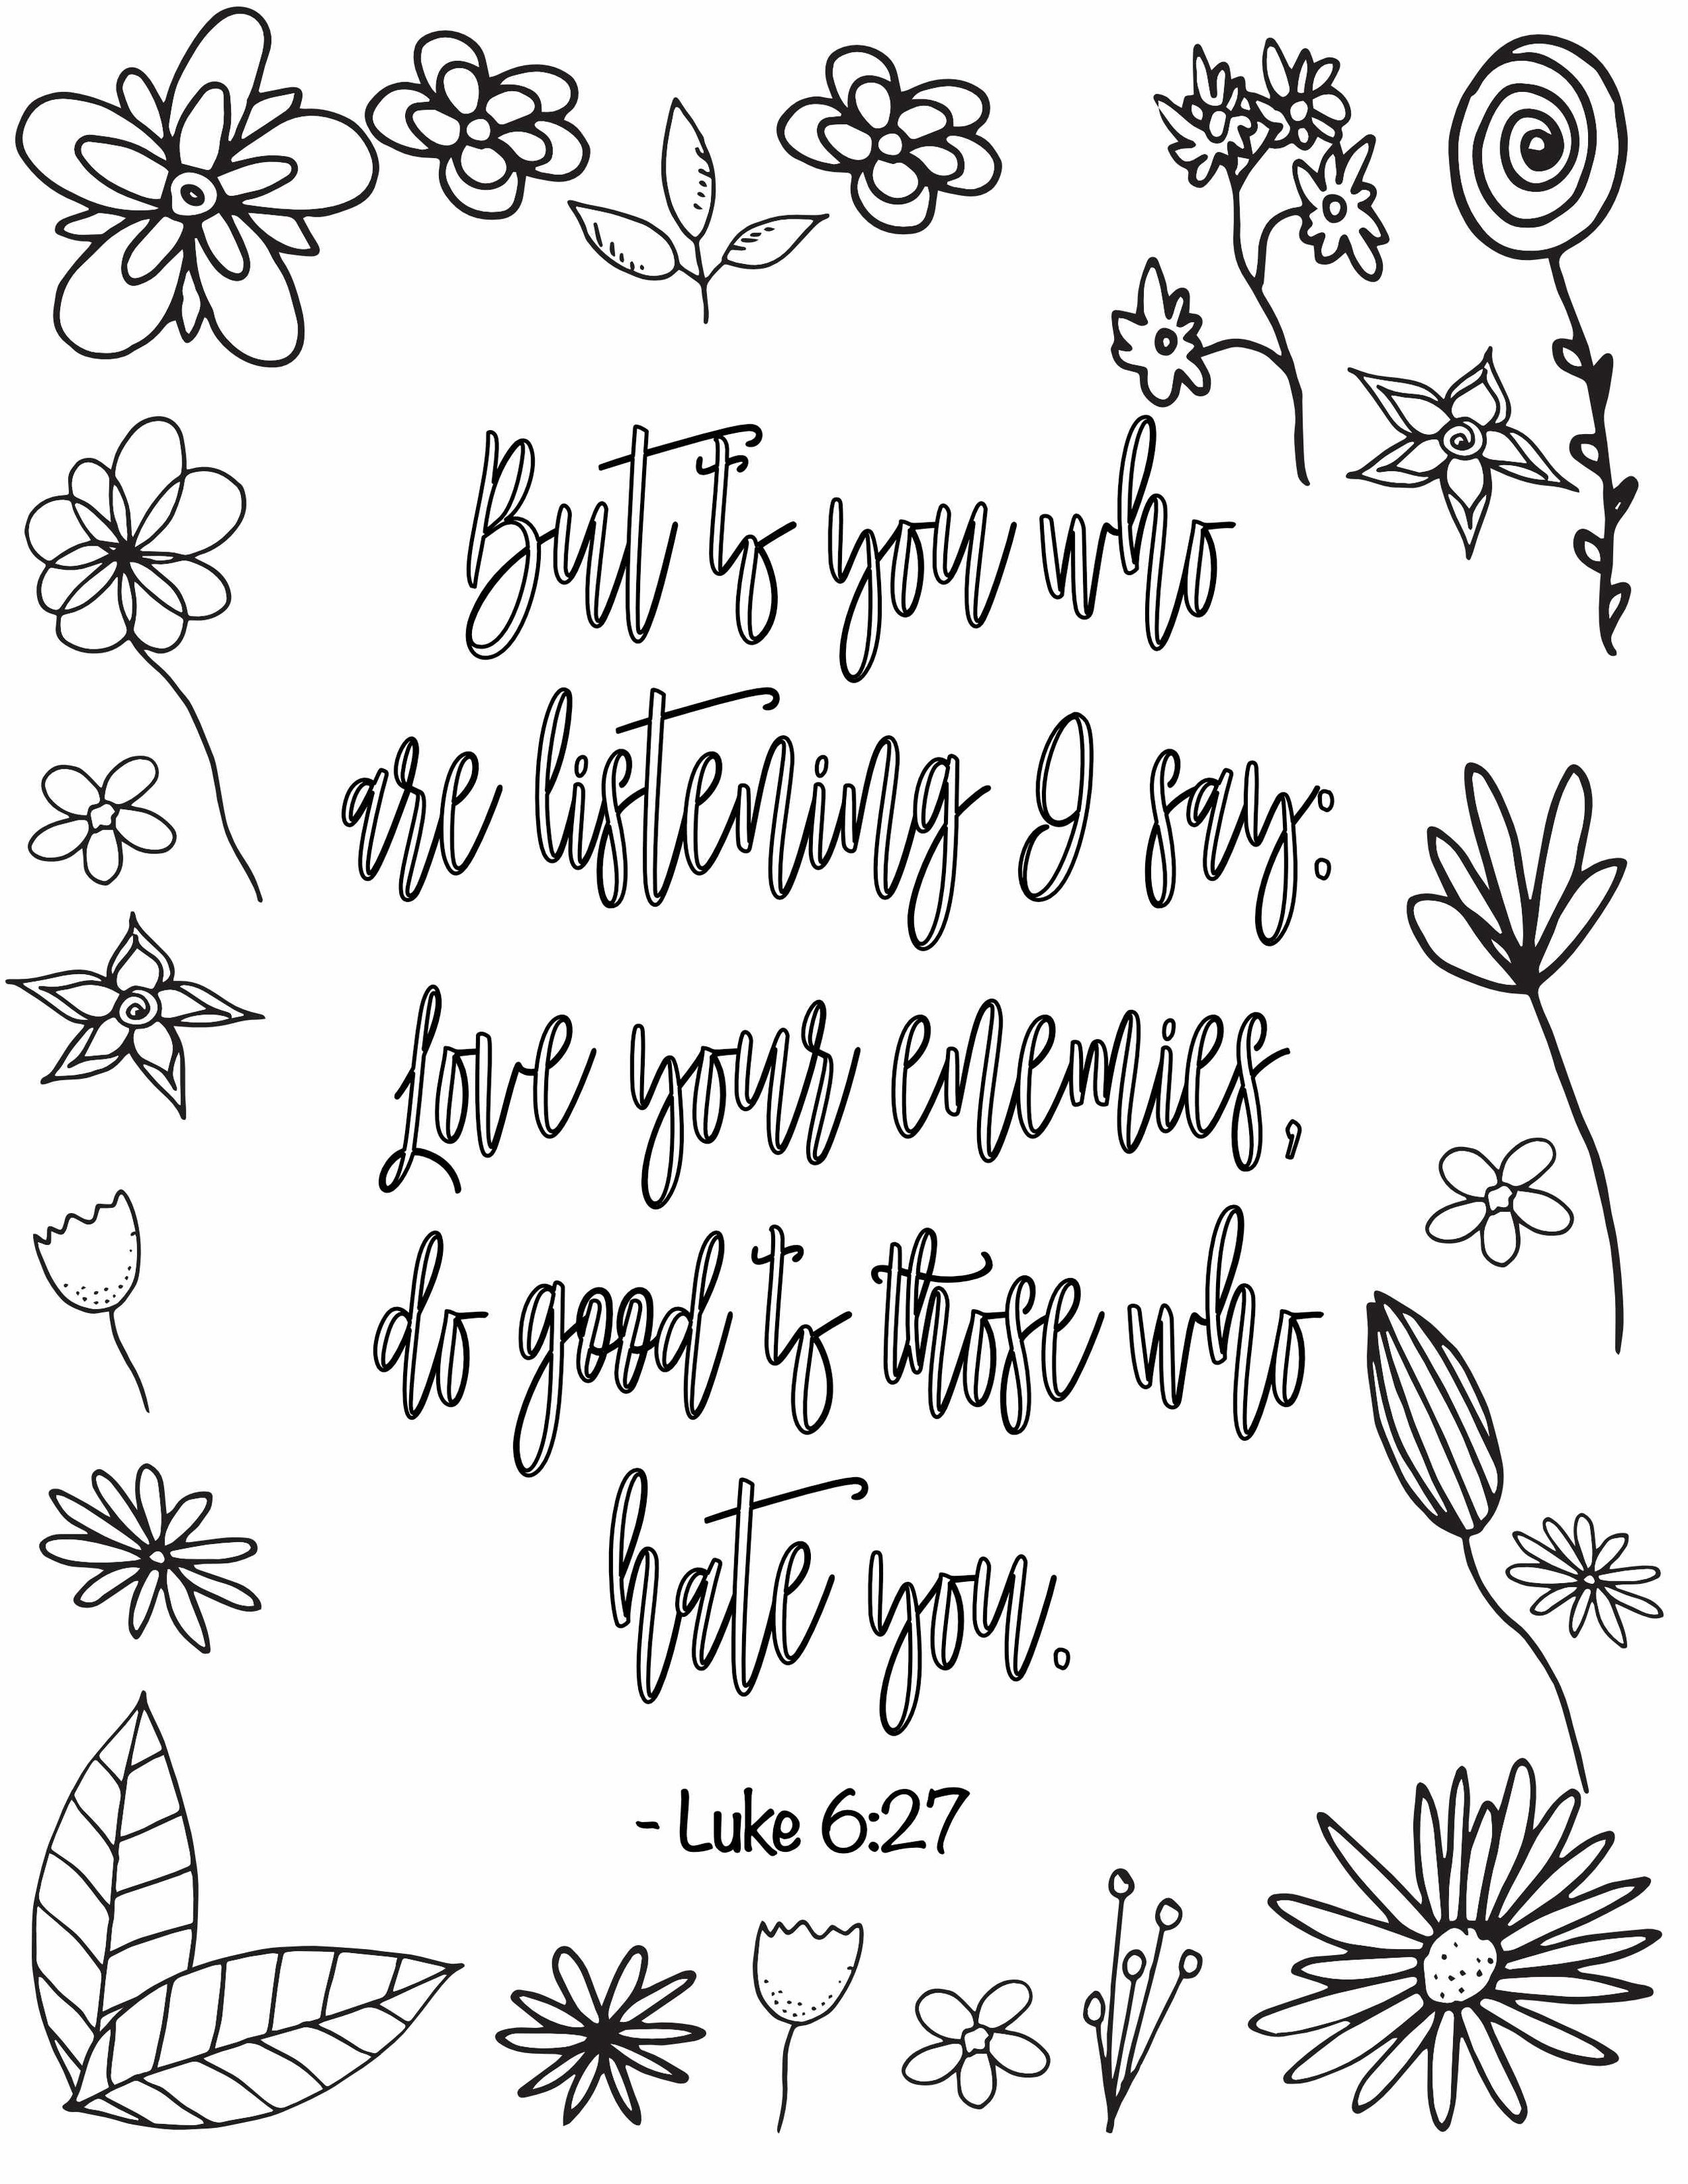 But to you who
are listening I say:
Love your enemies,
do good to those who
hate you.
-Luke 6:27